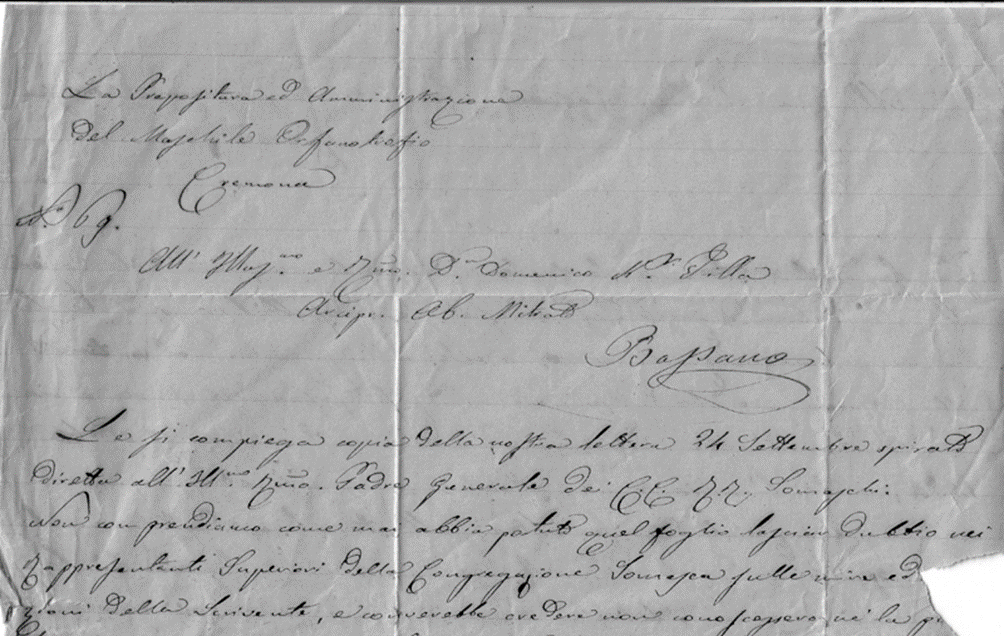 La Prepositura ed Amministrazione
del Maschile Orfanotrofio
Cremona
N.º 69.
All' Ill.mo e Rmo. D.n Domenico M.r Villa
Arcipr. Ab. Mitrato
Bassano
Le si compiega copia della nostra lettera 24 Settembre spirato
diretta all' Ill.mo Rmo. Padre Generale de' CC. RR. Somaschi.
Non comprendiamo come mai abbia potuto quel foglio lasciar dubbio nei
Rappresentanti Superiori della Congregazione Somasca sulle mire ed
zioni della Scrivente, e converrebbe credere non conoscessero nè la